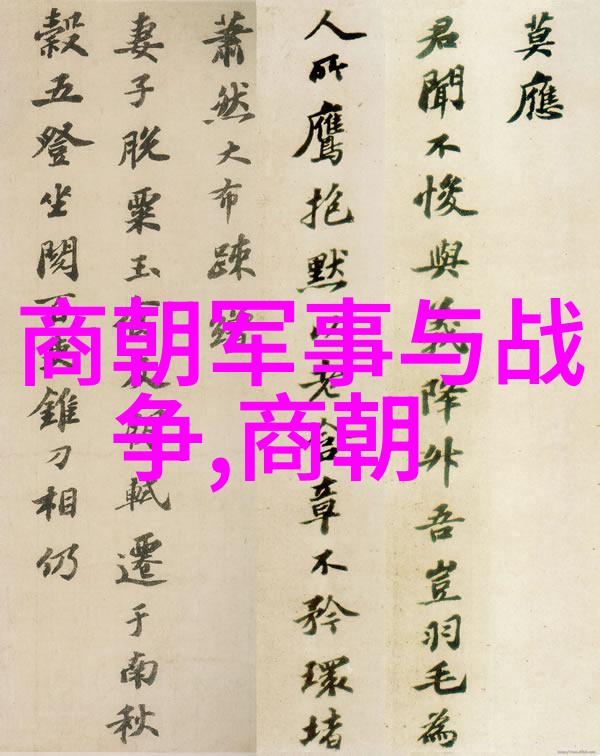 商朝军事与战
争,商朝
莫應
君聞不悛與義降外吾豈羽毛為
人所鷹抱默以老含章不矜環堵
蕭然大布疎
妻子脫粟玉軾遷于南秋
穀五登坐閱百錐刀相仍